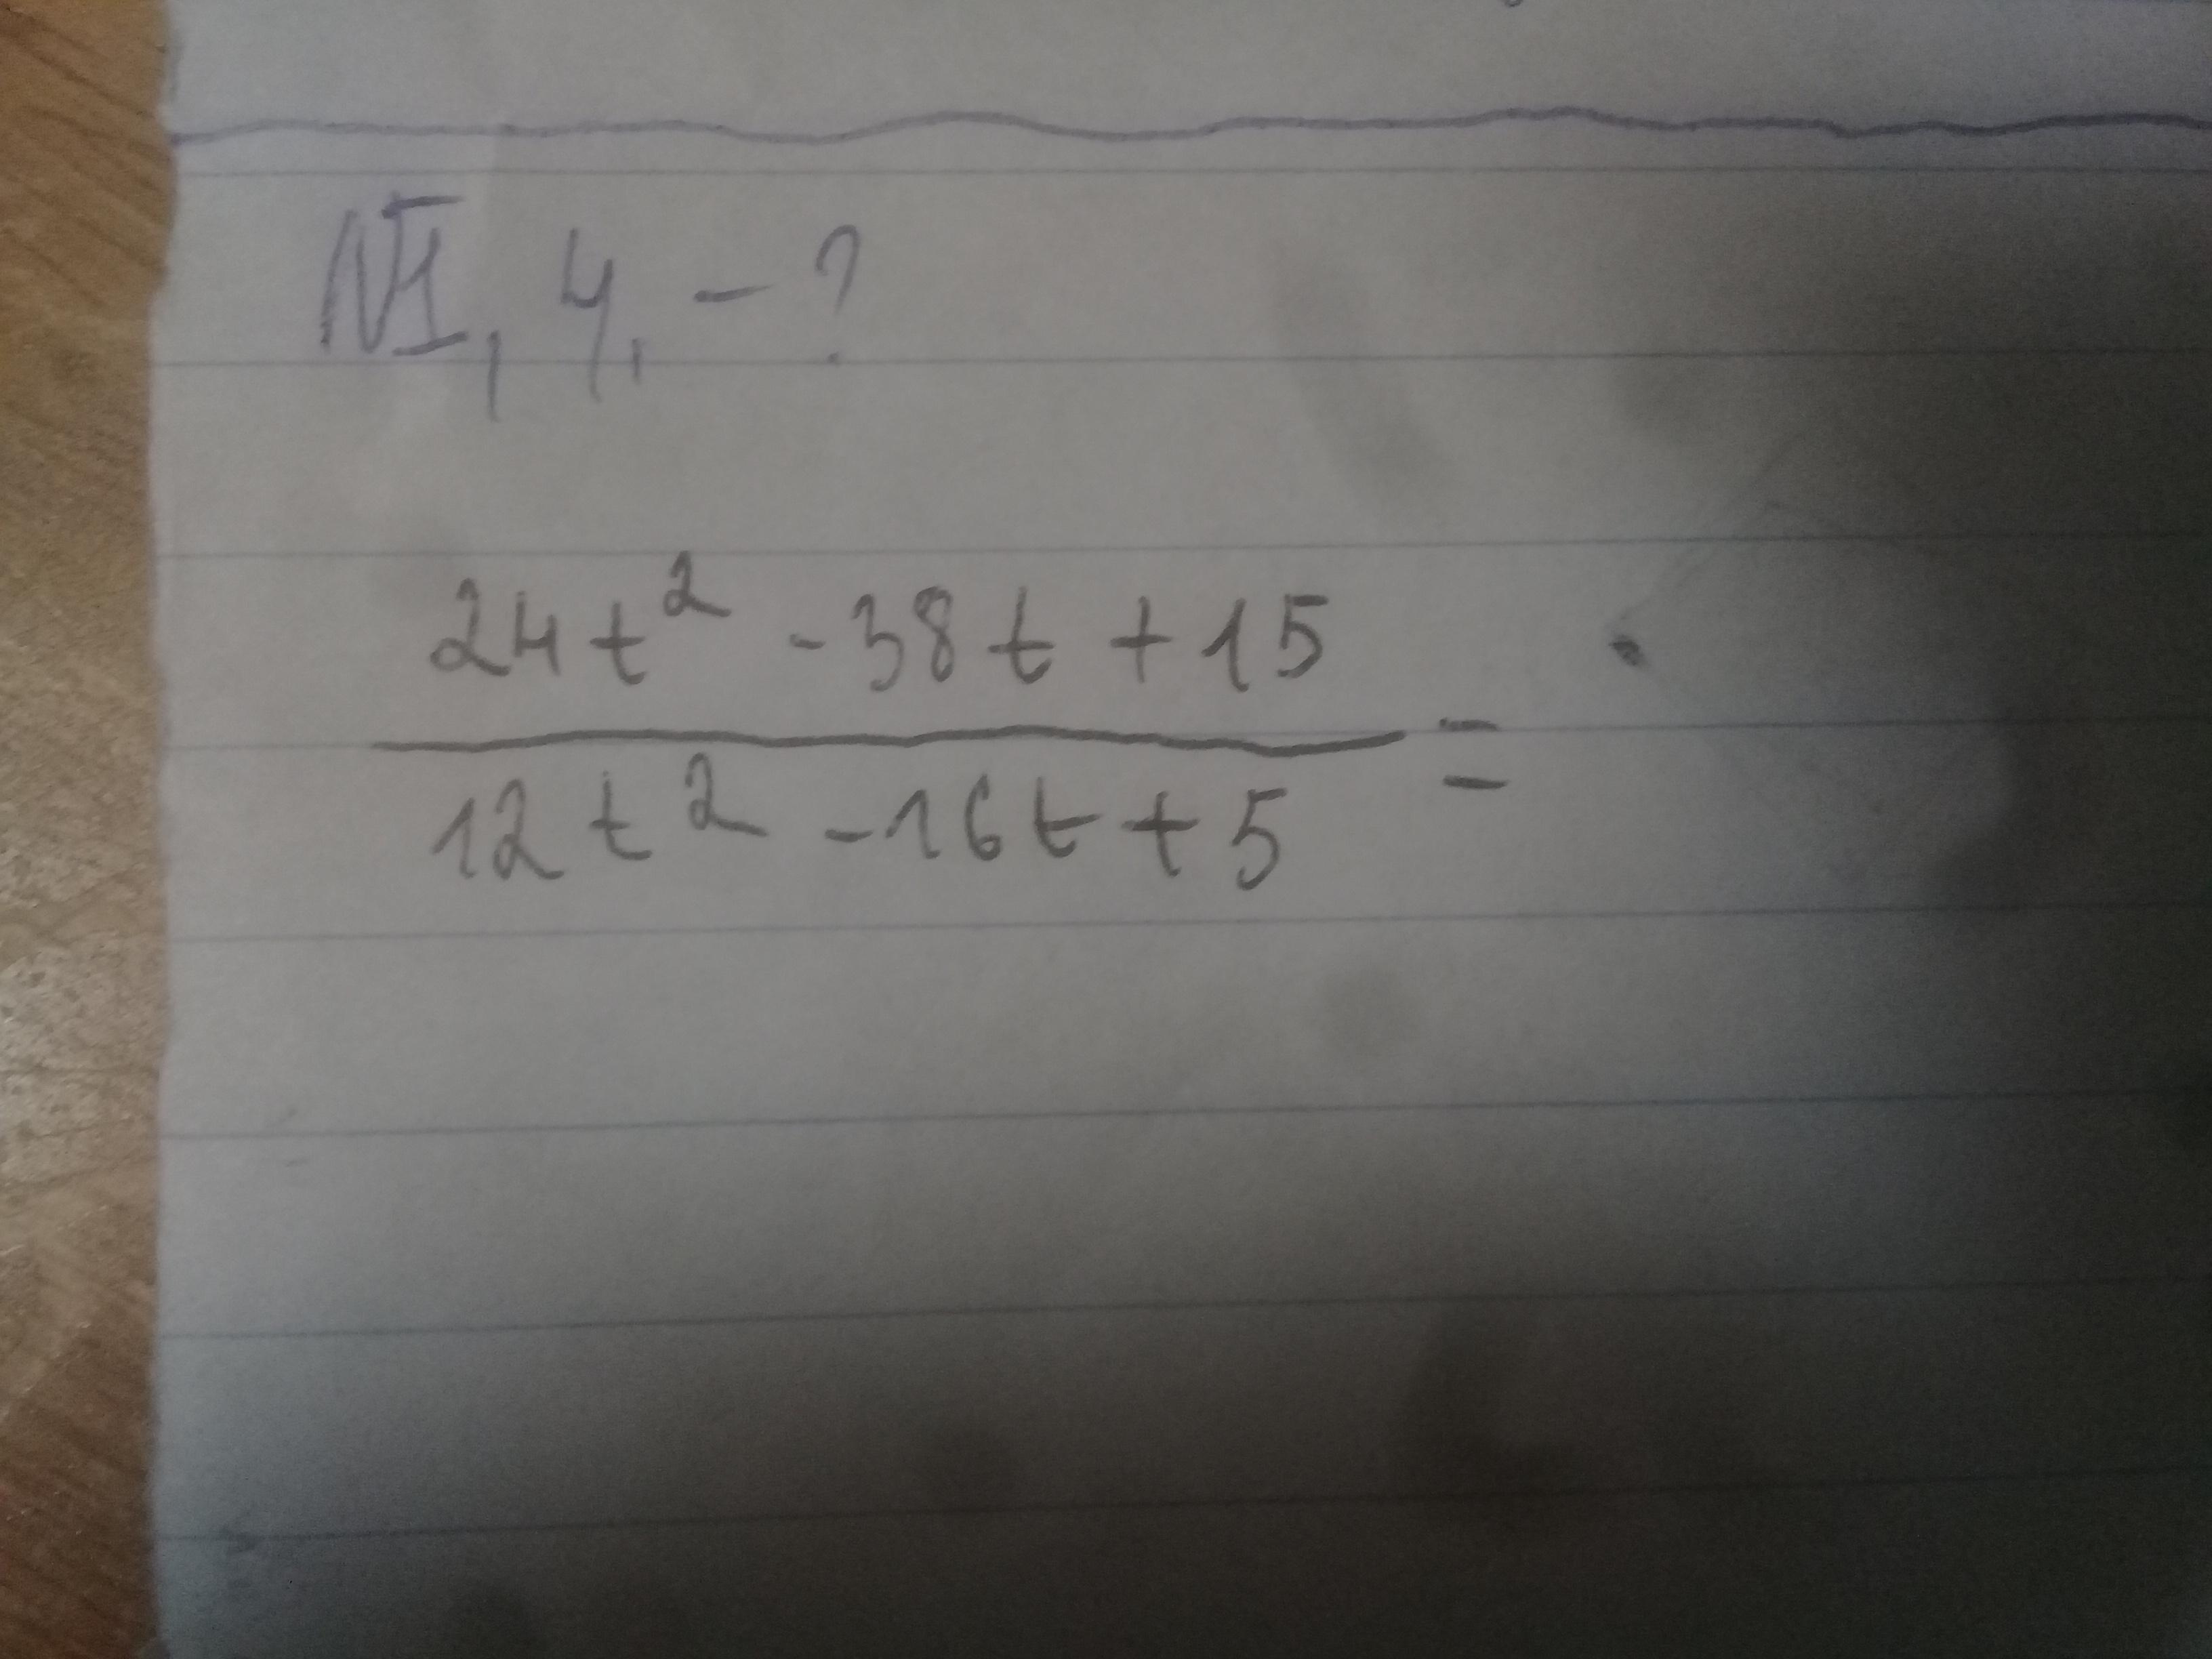 №1, 4, - ?
24t² - 38t + 15
12t² - 16t + 5 =